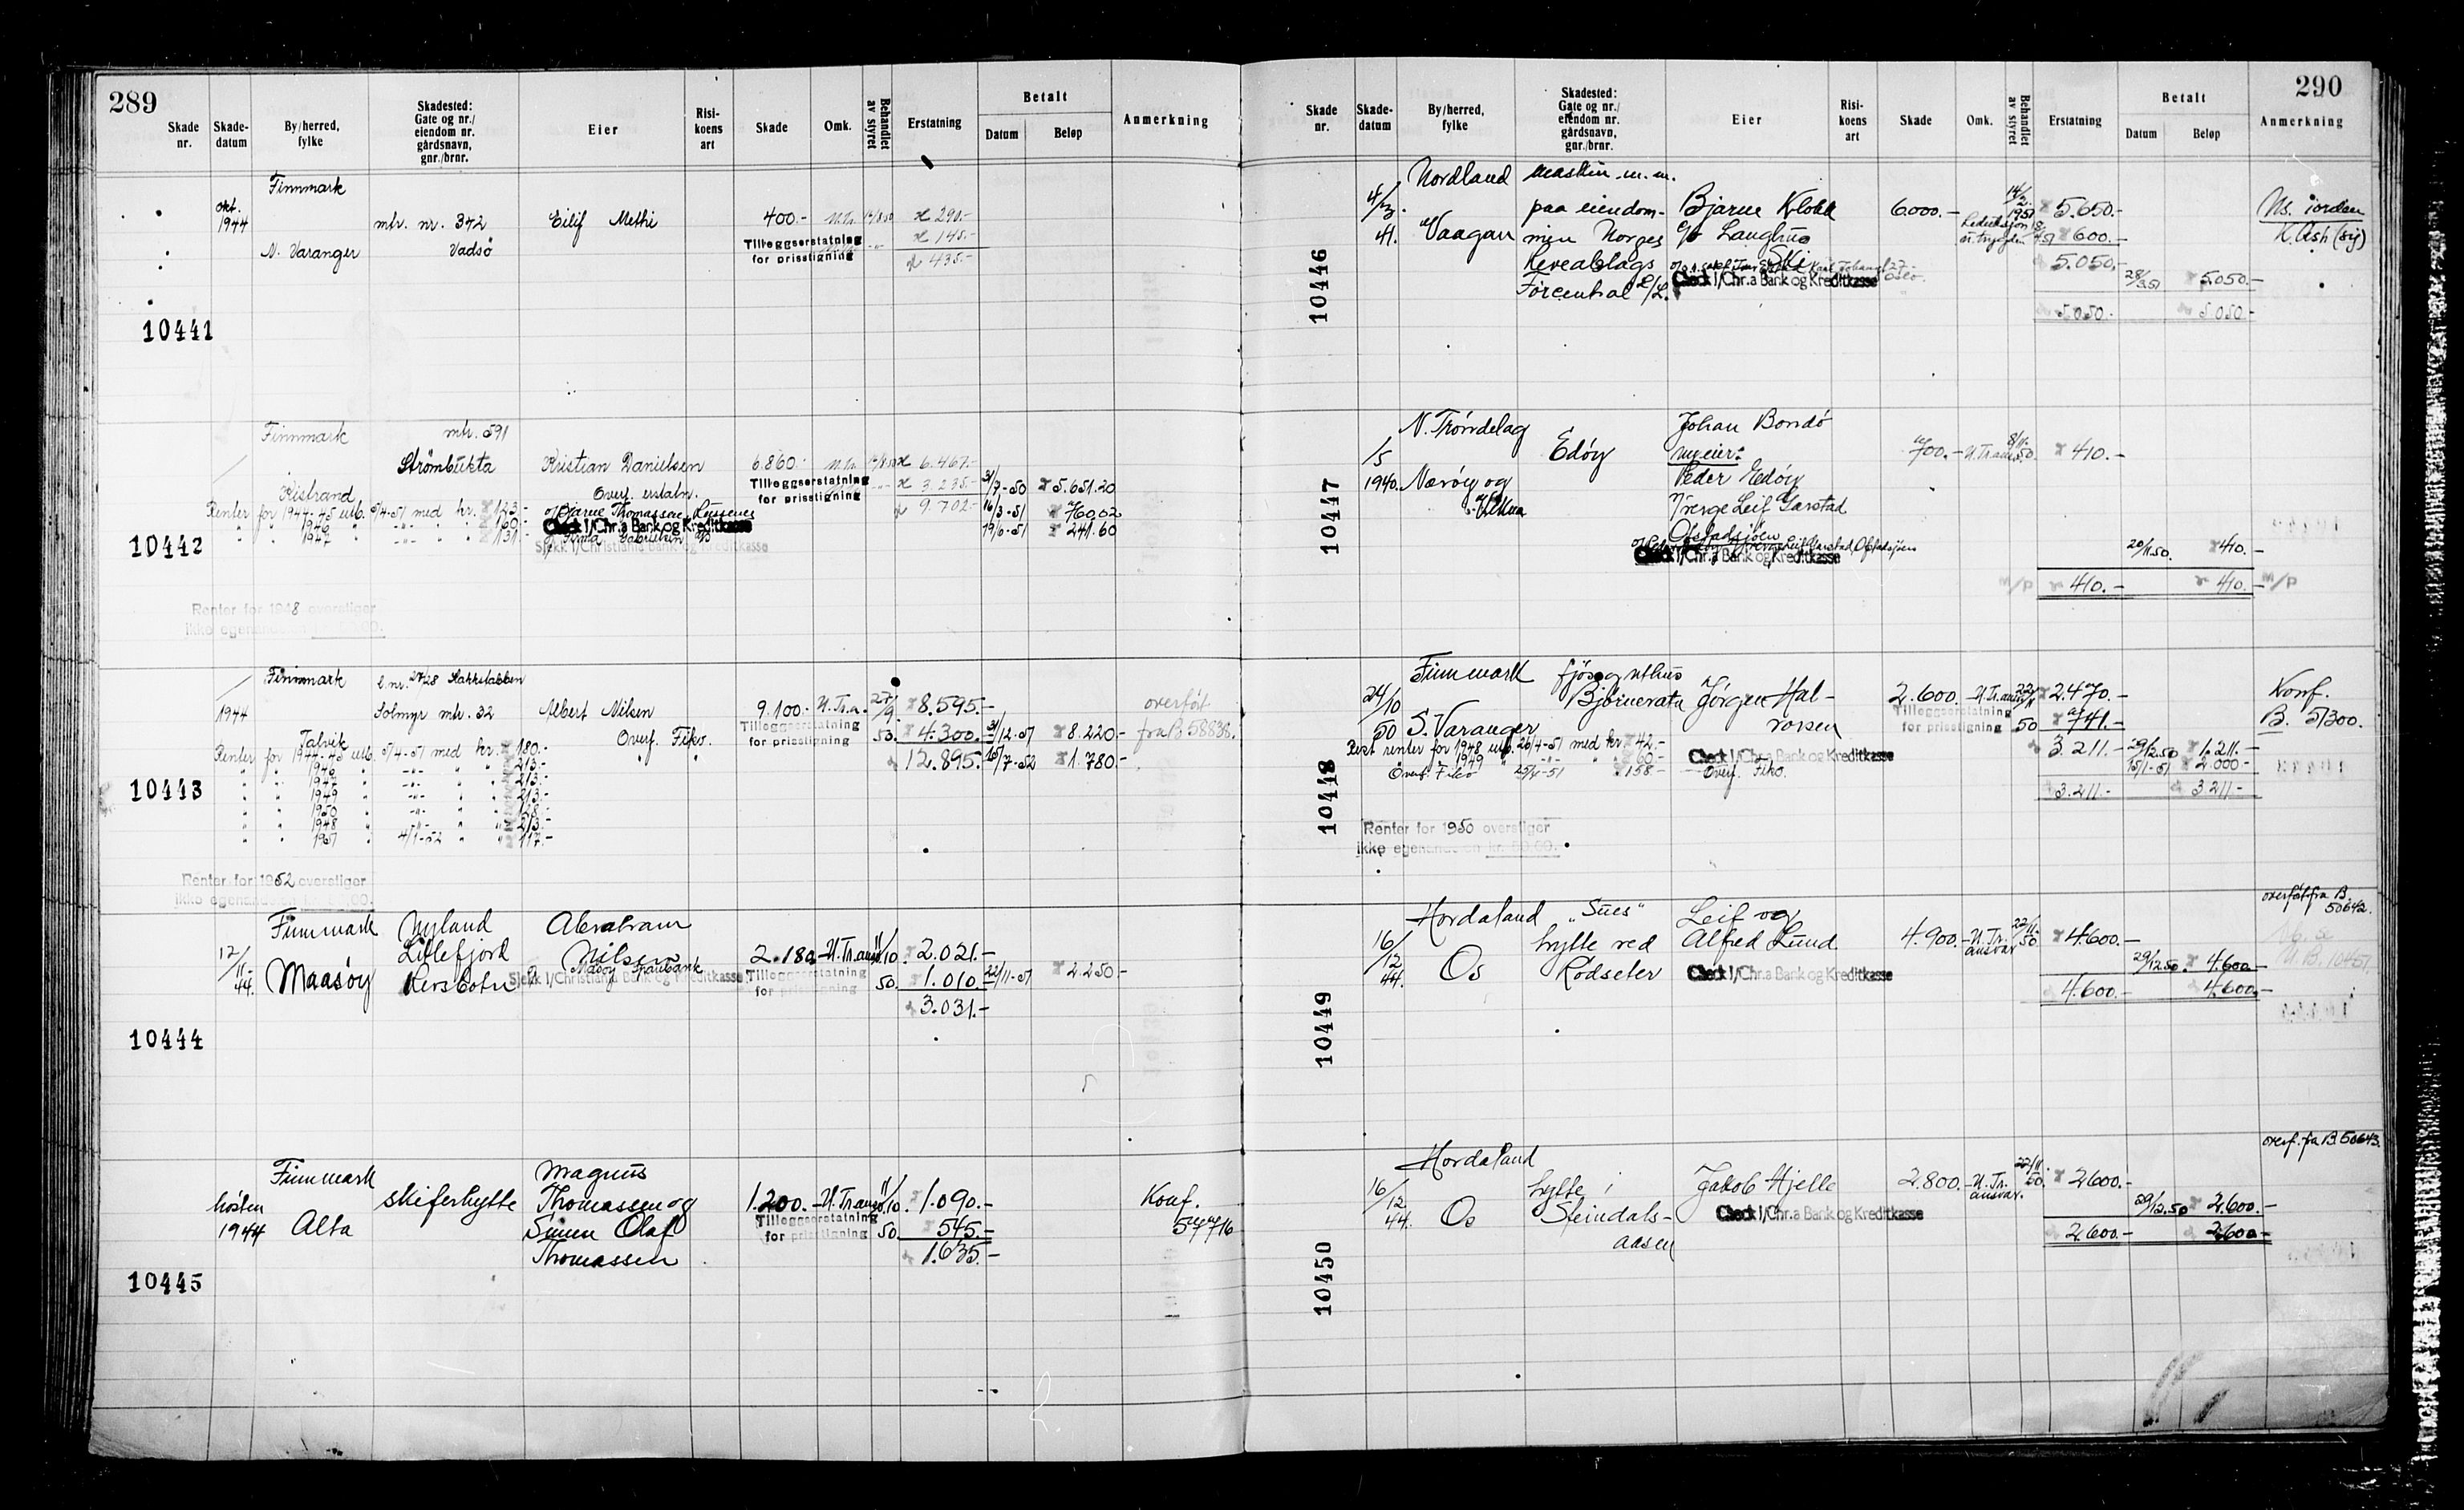 289
Skade nr.
Skade-datum
By/herred, fylke
Skadested: Gate og nr./ eiendom nr. gårdsnavn, gnr./brnr.
Eier
Risi-koens art
Skade
Omk.
Behandlet av styret
Erstatning
Betalt
Datum
Beløp
Anmerkning
Finnmark
okt. 1944
mtr. nr. 342
Eilif Methi
400.-
290.-
N. Varanger
Vadsö
Tilleggserstatning for prisstigning
145.-
435.-
10441
Finnmark
mtr. 591
Strömbukta
Kristian Danielsen
6.860.-
6.467.-
Kistrand
Overf. erstatn.
Tilleggserstatning for prisstigning
3.235.-
9.702.-
31/7-50 5.651.20
16/3-51 760,02
19/6-51 241.60
Renter for 1944-45 utb. 9/4-51 med kr. 123.-
" " 1946 " -"- " " 160.-
" " 1947 " -"- " " 131.-
Check I/Chr.a Bank og Kreditkasse
Sjekk I/Christiania Bank og Kreditkasse
10442
Renter for 1948 overstiger
ikke egenandelen
Finnmark
1944
Solmyr mtr. 32
Albert Nilsen
9.100.-
U.Tr.a.
27/9. 50.
8.595.-
overført fra B 58838.
Talvik
Overf. Fiko.
Tilleggserstatning for prisstigning
4.300.-
12.895.-
31/12-51 8.220.-
15/7-52 1.780.-
Renter for 1944-45 utb. 5/4-51 med kr. 180.-
" " 1946 " -"- " " 213.-
" " 1947 " -"- " " 213.-
" " 1949 " -"- " " 213.-
" " 1950 " -"- " " 128.-
" " 1948 " -"- " " 213.-
" " 1951 " 4/1-52 " " 117.-
10443
Renter for 1952 overstiger
ikke egenandelen
Finnmark
Nyland
Abraham
12/11-44.
Lillefjord
Nilsen
2.180.-
U.Tr.ansv.
11/10. 50.
2.021.-
Maasöy
Kersbotn
Måsöy Sparebank
Sjekk I/Christiania Bank og Kreditkasse
Tilleggserstatning for prisstigning
1.010.-
22/11-51 2.250.-
3.031.-
10444
Finnmark
Magnus
hösten 1944
Alta
skiferhytte
Thomassen og
Simen Olaf
Thomassen
1.200.-
U.Tr.ansv.
11/10. 50.
1.090.-
Konf.
57716
Tilleggserstatning for prisstigning
545.-
1.635.-
10445
290
Skade nr.
Skade-datum
By/herred, fylke
Skadested: Gate og nr./ eiendom nr. gårdsnavn, gnr./brnr.
Eier
Risi-koens art
Skade
Omk.
Behandlet av styret
Erstatning
Betalt
Datum
Beløp
Anmerkning
Nordland
maskin m.m.
paa eiendom-
Vaagan
men Norges
Levealdags
Forcentral L/L.
Bjarne Klokk
41.
6000.-
14/2. 1951
5.650.-
600.-
5.050.-
28/3 51 5.050.-
5.050.- 5.050.-
Check I/Chr.a Bank og Kreditkasse
10446
N. Tröndelag
Edöy
Johan Bondö
ny eier:
Peder Edöy
/5 1940.
Næröy og
Leka
Leif Garstad
Ofstadsjöen
700.-
U.Tr.ans.
8/11. 50.
410.-
Check I/Chr.a Bank og Kreditkasse
20/11.50. 410.-
410.- 410.-
10447
Finnmark
fjös og uthus
24/10 50
S. Varanger
Björnevatn
Jörgen Hal-
vorsen
2.600.-
U.Tr.ansv.
22/11 50
2.470.-
Konf.
B. 51300.
Tilleggserstatning for prisstigning
741.-
3.211.-
29/12.50 1.211.-
15/1-51 2.000.-
3.211.- 3.211.-
Rest renter for 1948 utb. 26/4-51 med kr. 42.-
" " 1949 " -"- " 60.-
Overf. Fiko 25/5-51 158.- Overf. Fiko.
Check I/Chr.a Bank og Kreditkasse
10448
Renter for 1950 overstiger
ikke egenandelen kr. 50.00.
Hordaland
"Sües"
hytte ved
Rödseter
Leif og
Alfred Lund
16/12 44.
Os
4.900.-
U.Tr. ansvar
22/11. 50
4.600.-
overfört fra B. 50642.
Check I/Chr.a Bank og Kreditkasse
29/12.50. 4.600.-
4.600.- 4.600.-
10449
Hordaland
hytte i
Steindals-
aasen
Jakob Hjelle
16/12 44.
Os
2.800.-
U.Tr. ansvar.
22/11. 50.
2600.-
overf. fra B. 50643.
Check I/Chr.a Bank og Kreditkasse
29/12.50 2.600.-
2.600.- 2.600.-
10450